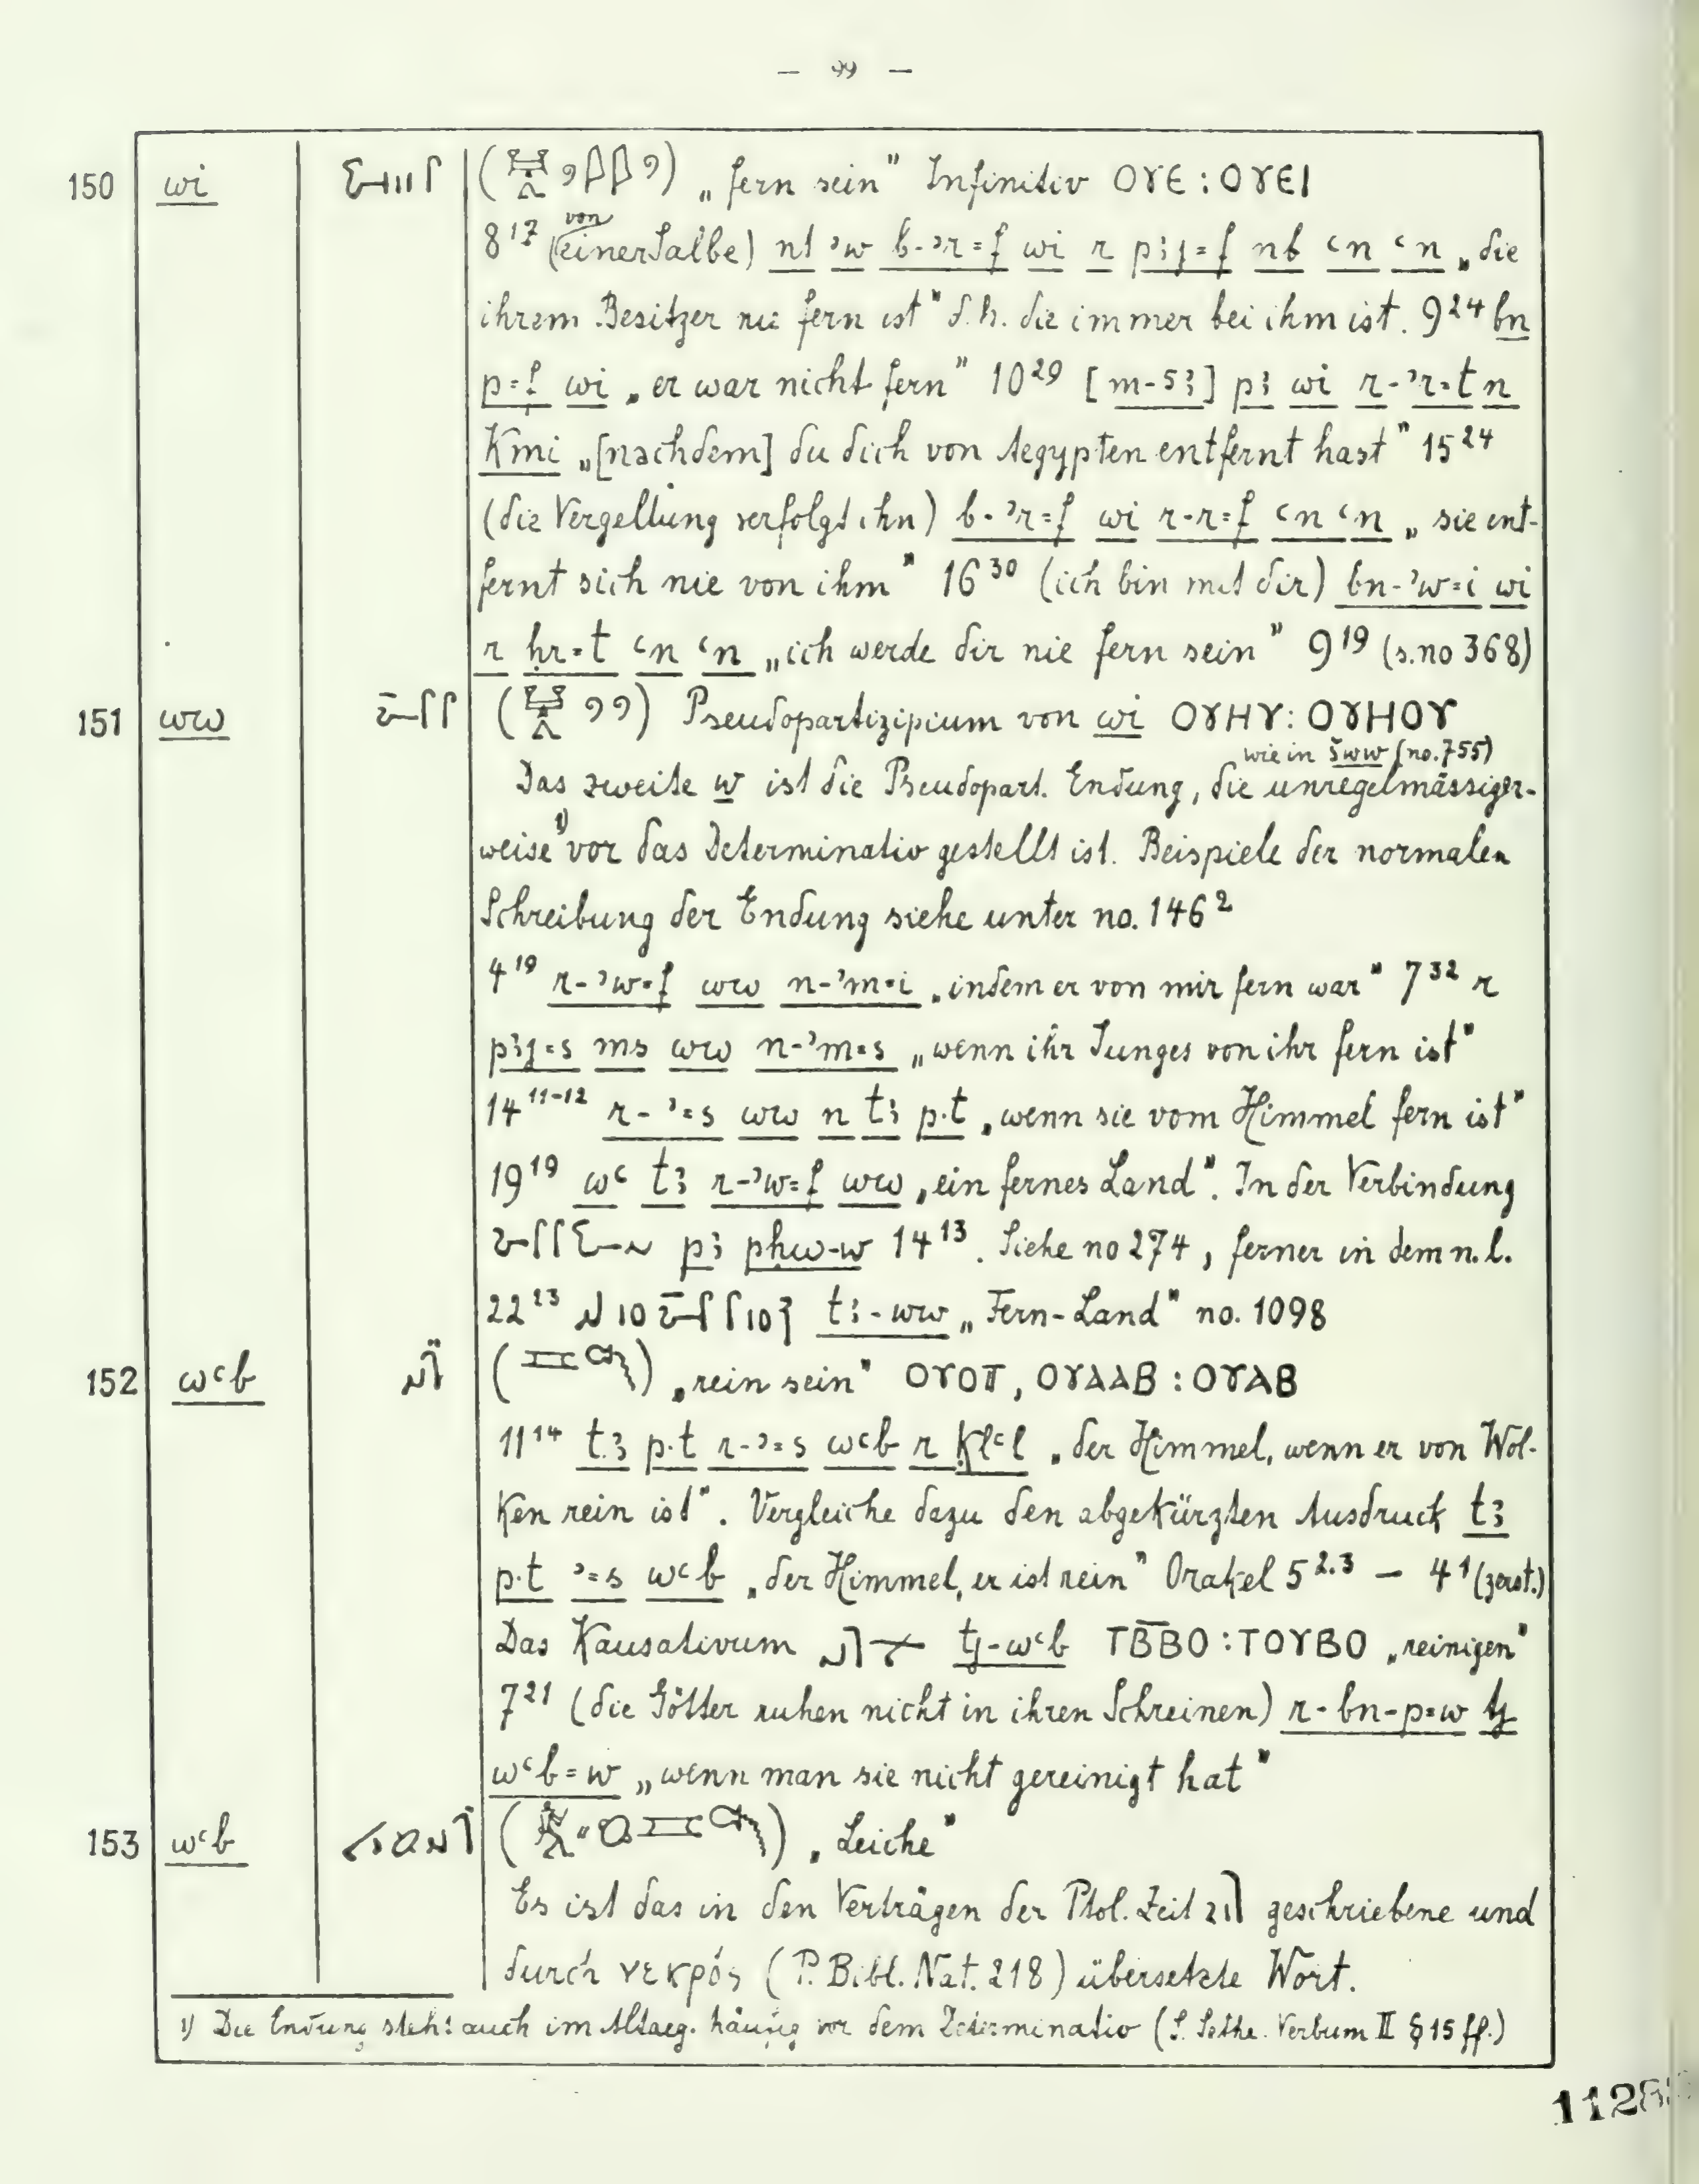 — 99 —
150 wi ( ) „fern sein" Infinitiv ⲞⲨⲈ : ⲞⲨⲈⲒ
8¹⁷ (von einer Salbe) nt ʾw b-ʾr=f wi r pꜣj=f nb ꜥn ꜥn „die
ihrem Besitzer nie fern ist" d.h. die immer bei ihm ist. 9²⁴ bn
p=f wi „er war nicht fern" 10²⁹ [m-sꜣ] pꜣ wi r-ʾr=t n
Kmi „[nachdem] du dich von Aegypten entfernt hast" 15²⁴
(die Vergeltung verfolgt ihn) b-ʾr=f wi r-r=f ꜥn ꜥn „sie ent-
fernt sich nie von ihm" 16³⁰ (ich bin mit dir) bn-ʾw=i wi
r ḥr=t ꜥn ꜥn „ich werde dir nie fern sein" 9¹⁹ (s. no 368)
151 ww ( ) Pseudopartizipium von wi ⲞⲨⲎⲨ : ⲞⲨⲎⲞⲨ
wie in šww (no. 755)
Das zweite w ist die Pseudopart. Endung, die unregelmässiger-
weise ¹⁾ vor das Determinativ gestellt ist. Beispiele der normalen
Schreibung der Endung siehe unter no. 146²
4¹⁹ r-ʾw=f ww n-ʾm=i „indem er von mir fern war" 7³² r
pꜣj=s ms ww n-ʾm=s „wenn ihr Junges von ihr fern ist"
14¹¹⁻¹² r-ʾ=s ww n tꜣ p.t „wenn sie vom Himmel fern ist"
19¹⁹ wꜥ tꜣ r-ʾw=f ww „ein fernes Land". In der Verbindung
pꜣ pḥw-w 14¹³. Siehe no 274, ferner in dem n. l.
22²³ tꜣ-ww „Fern-Land" no. 1098
152 wꜥb ( ) „rein sein" ⲞⲨⲞⲠ, ⲞⲨⲀⲀⲂ : ⲞⲨⲀⲂ
11¹⁴ tꜣ p.t r-ʾ=s wꜥb r ḳlꜥl „der Himmel, wenn er von Wol-
ken rein ist". Vergleiche dazu den abgekürzten Ausdruck tꜣ
p.t ʾ=s wꜥb „der Himmel, er ist rein" Orakel 5²·³ — 4¹ (zerst.)
Das Kausativum tj-wꜥb ⲦⲂ̅ⲂⲞ : ⲦⲞⲨⲂⲞ „reinigen"
7²¹ (die Götter ruhen nicht in ihren Schreinen) r-bn-p=w tj
wꜥb=w „wenn man sie nicht gereinigt hat"
153 wꜥb ( ) „Leiche"
Es ist das in den Verträgen der Ptol. Zeit geschriebene und
durch νεκρός (P. Bibl. Nat. 218) übersetzte Wort.
¹⁾ Die Endung steht auch im Altaeg. häufig vor dem Determinativ (S. Sethe. Verbum II § 15 ff.)